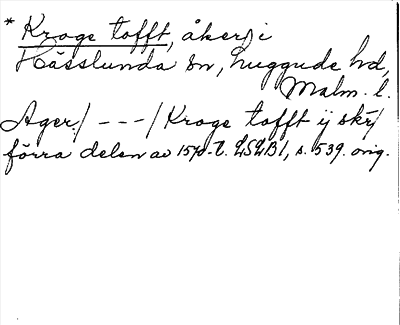 * Kroge tofft, åker, i
Hässlunda sn, Luggude hd,
Malm. l.
Ager./---/Kroge tofft ij skr/
förra delen av 1570-t. LSLB1, s. 539. orig.